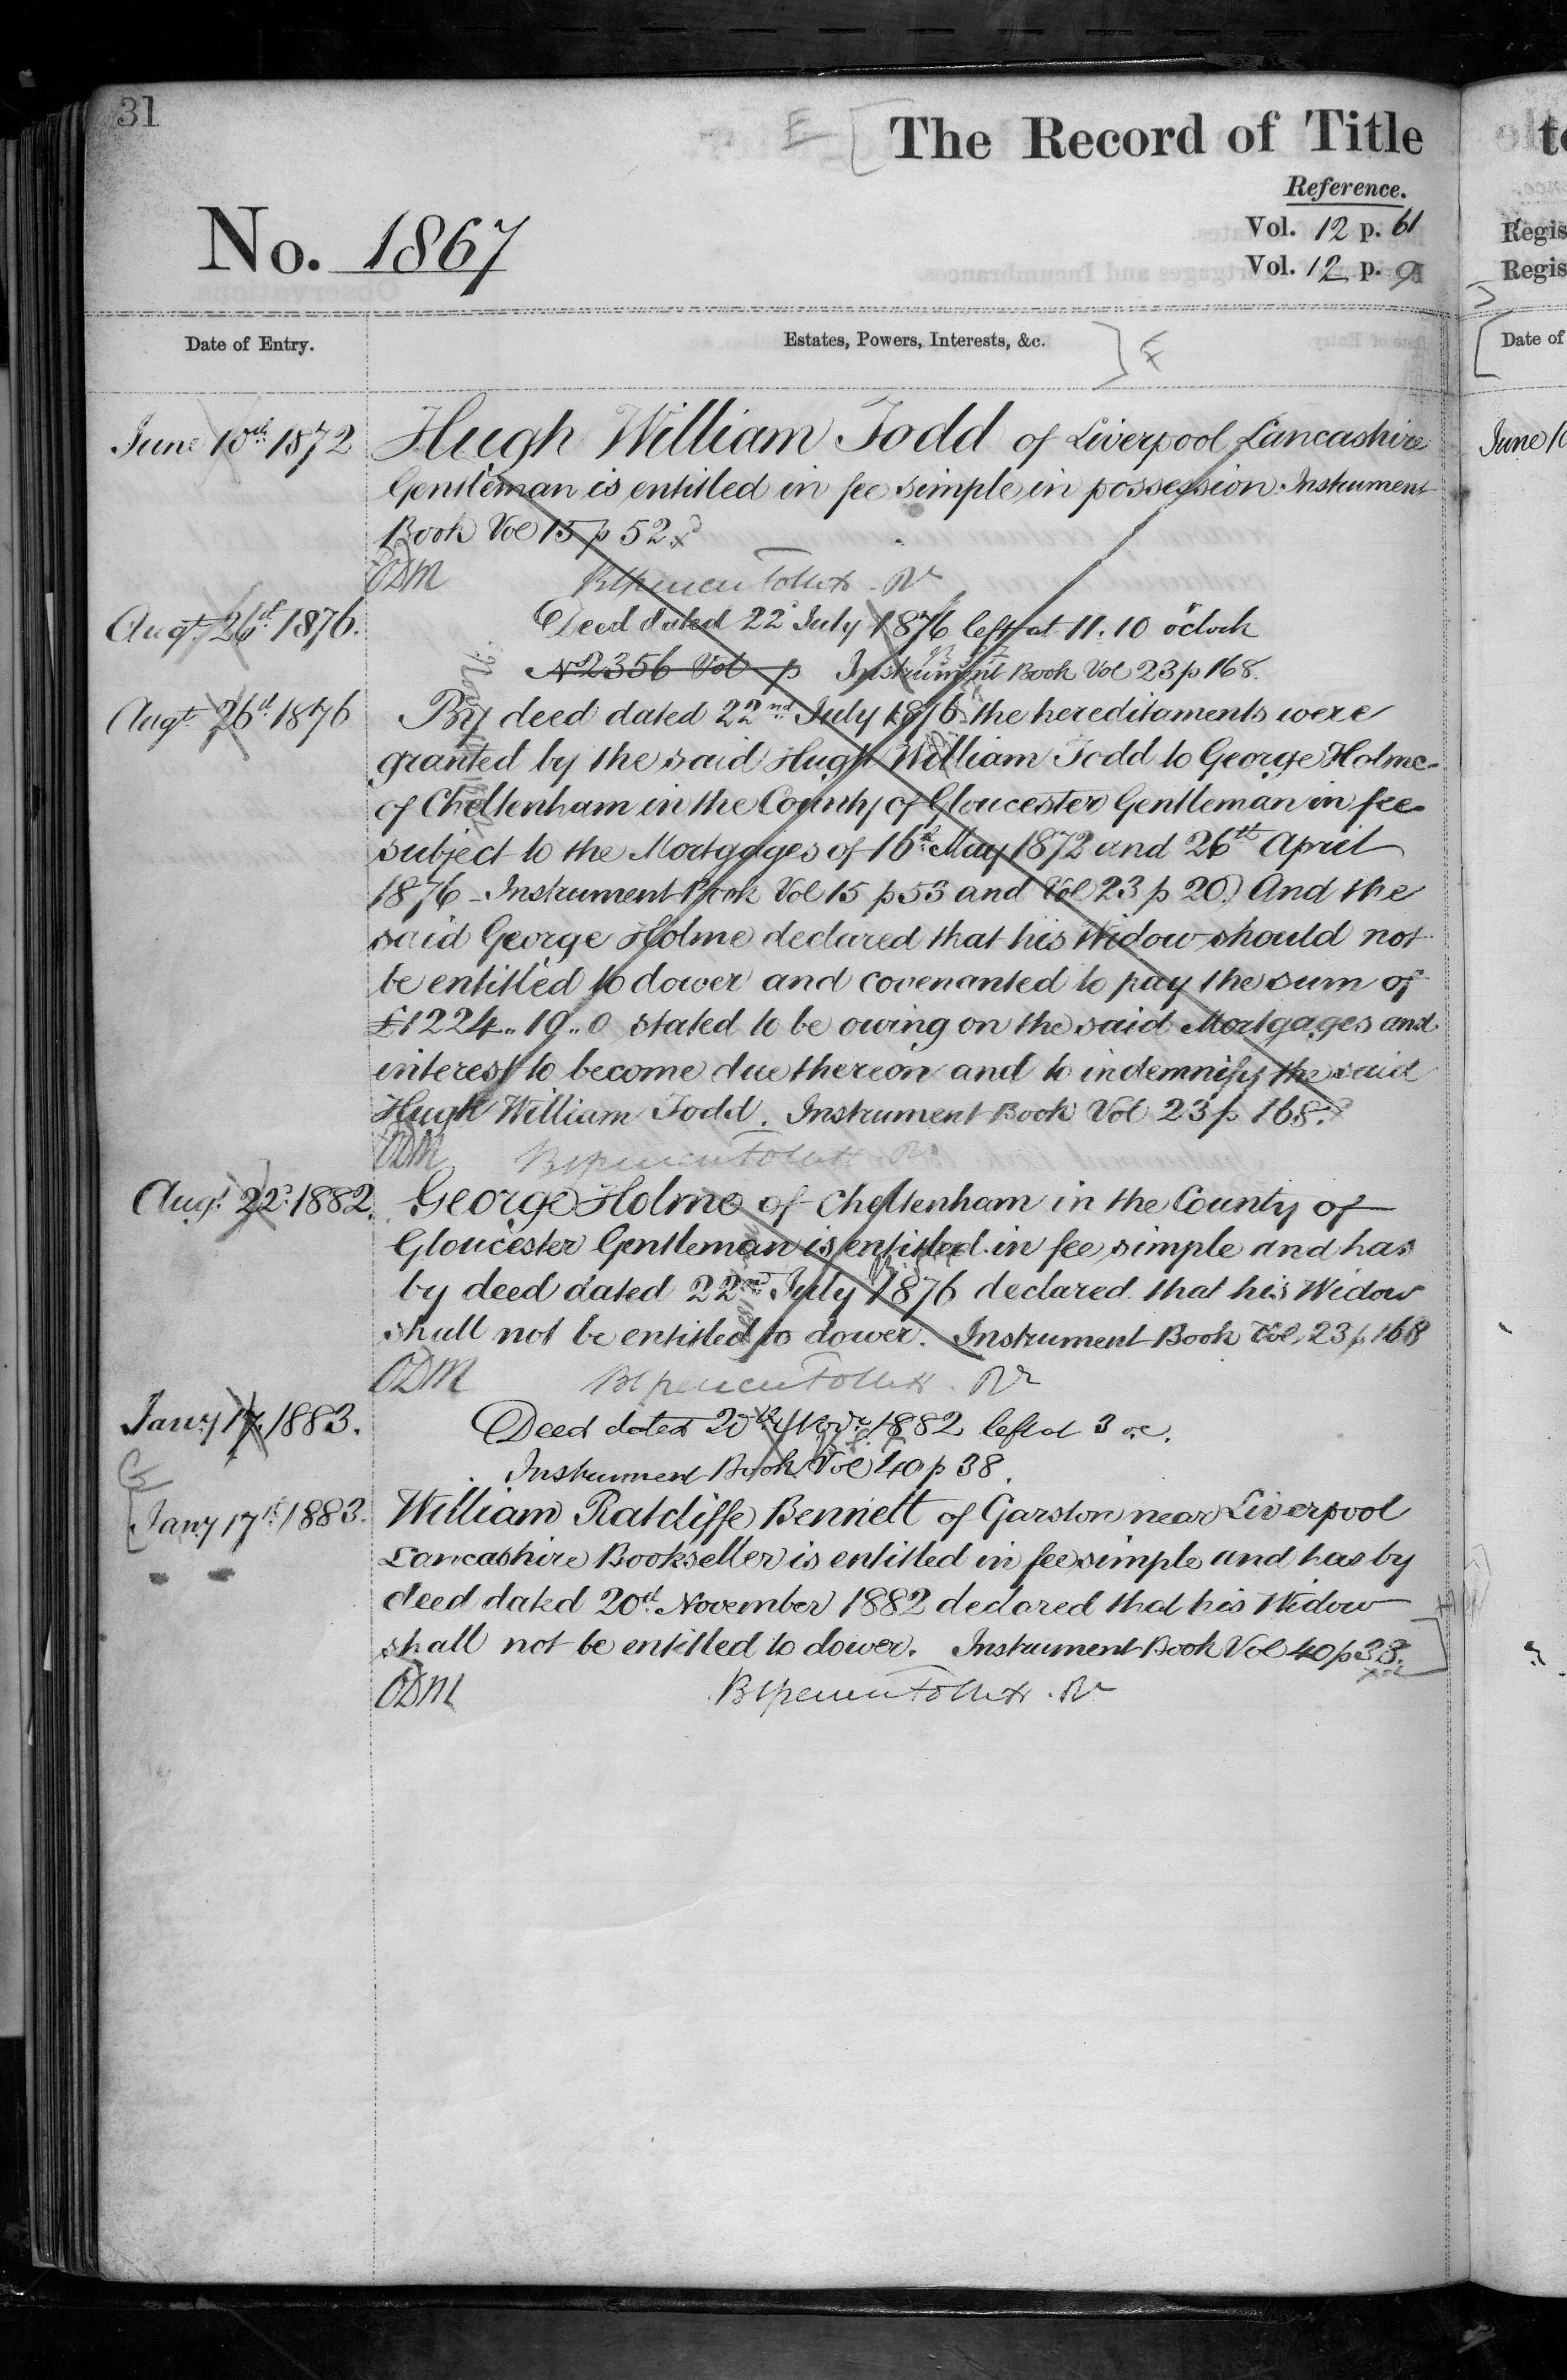 31
E [ The Record of Title
Reference.
No. 1867
Vol. 12 p. 61
Vol. 12 p. 9
Date of Entry.
Estates, Powers, Interests, &c. ] E
June 10th 1872 Hugh William Todd of Liverpool Lancashire
Gentleman is entitled in fee simple in possession. Instrument
Book Vol 15 p 52.
ODM
Augt. 26th 1876. Deed dated 22d July 1876 left at 11.10 o'clock
No 2356 Vol p Instrument Book Vol 23 p 168.
Augt. 26th 1876 By deed dated 22nd July 1876 the hereditaments were
granted by the said Hugh William Todd to George Holme
of Cheltenham in the County of Gloucester Gentleman in fee
subject to the Mortgages of 16th May 1872 and 26th April
1876 - Instrument Book Vol 15 p 53 and Vol 23 p 20. And the
said George Holme declared that his Widow should not
be entitled to dower and covenanted to pay the sum of
£1224.. 19.. 0 stated to be owing on the said Mortgages and
interest to become due thereon and to indemnify the said
Hugh William Todd. Instrument Book Vol 23 p 168.
ODM
Augt. 22d 1882. George Holme of Cheltenham in the County of
Gloucester Gentleman is entitled in fee simple and has
by deed dated 22nd July 1876 declared that his Widow
shall not be entitled to dower. Instrument Book Vol 23 p 168
ODM
Jany 17. 1883. Deed dated 20th Novr 1882 left at 3 oc.
Instrument Book Vol 40 p 38.
Jany 17th 1883. William Ratcliffe Bennett of Garston near Liverpool
Lancashire Bookseller is entitled in fee simple and has by
deed dated 20th November 1882 declared that his Widow
shall not be entitled to dower. Instrument Book Vol 40 p 38.
ODM
to
Regis
Regis
Date of
June 10